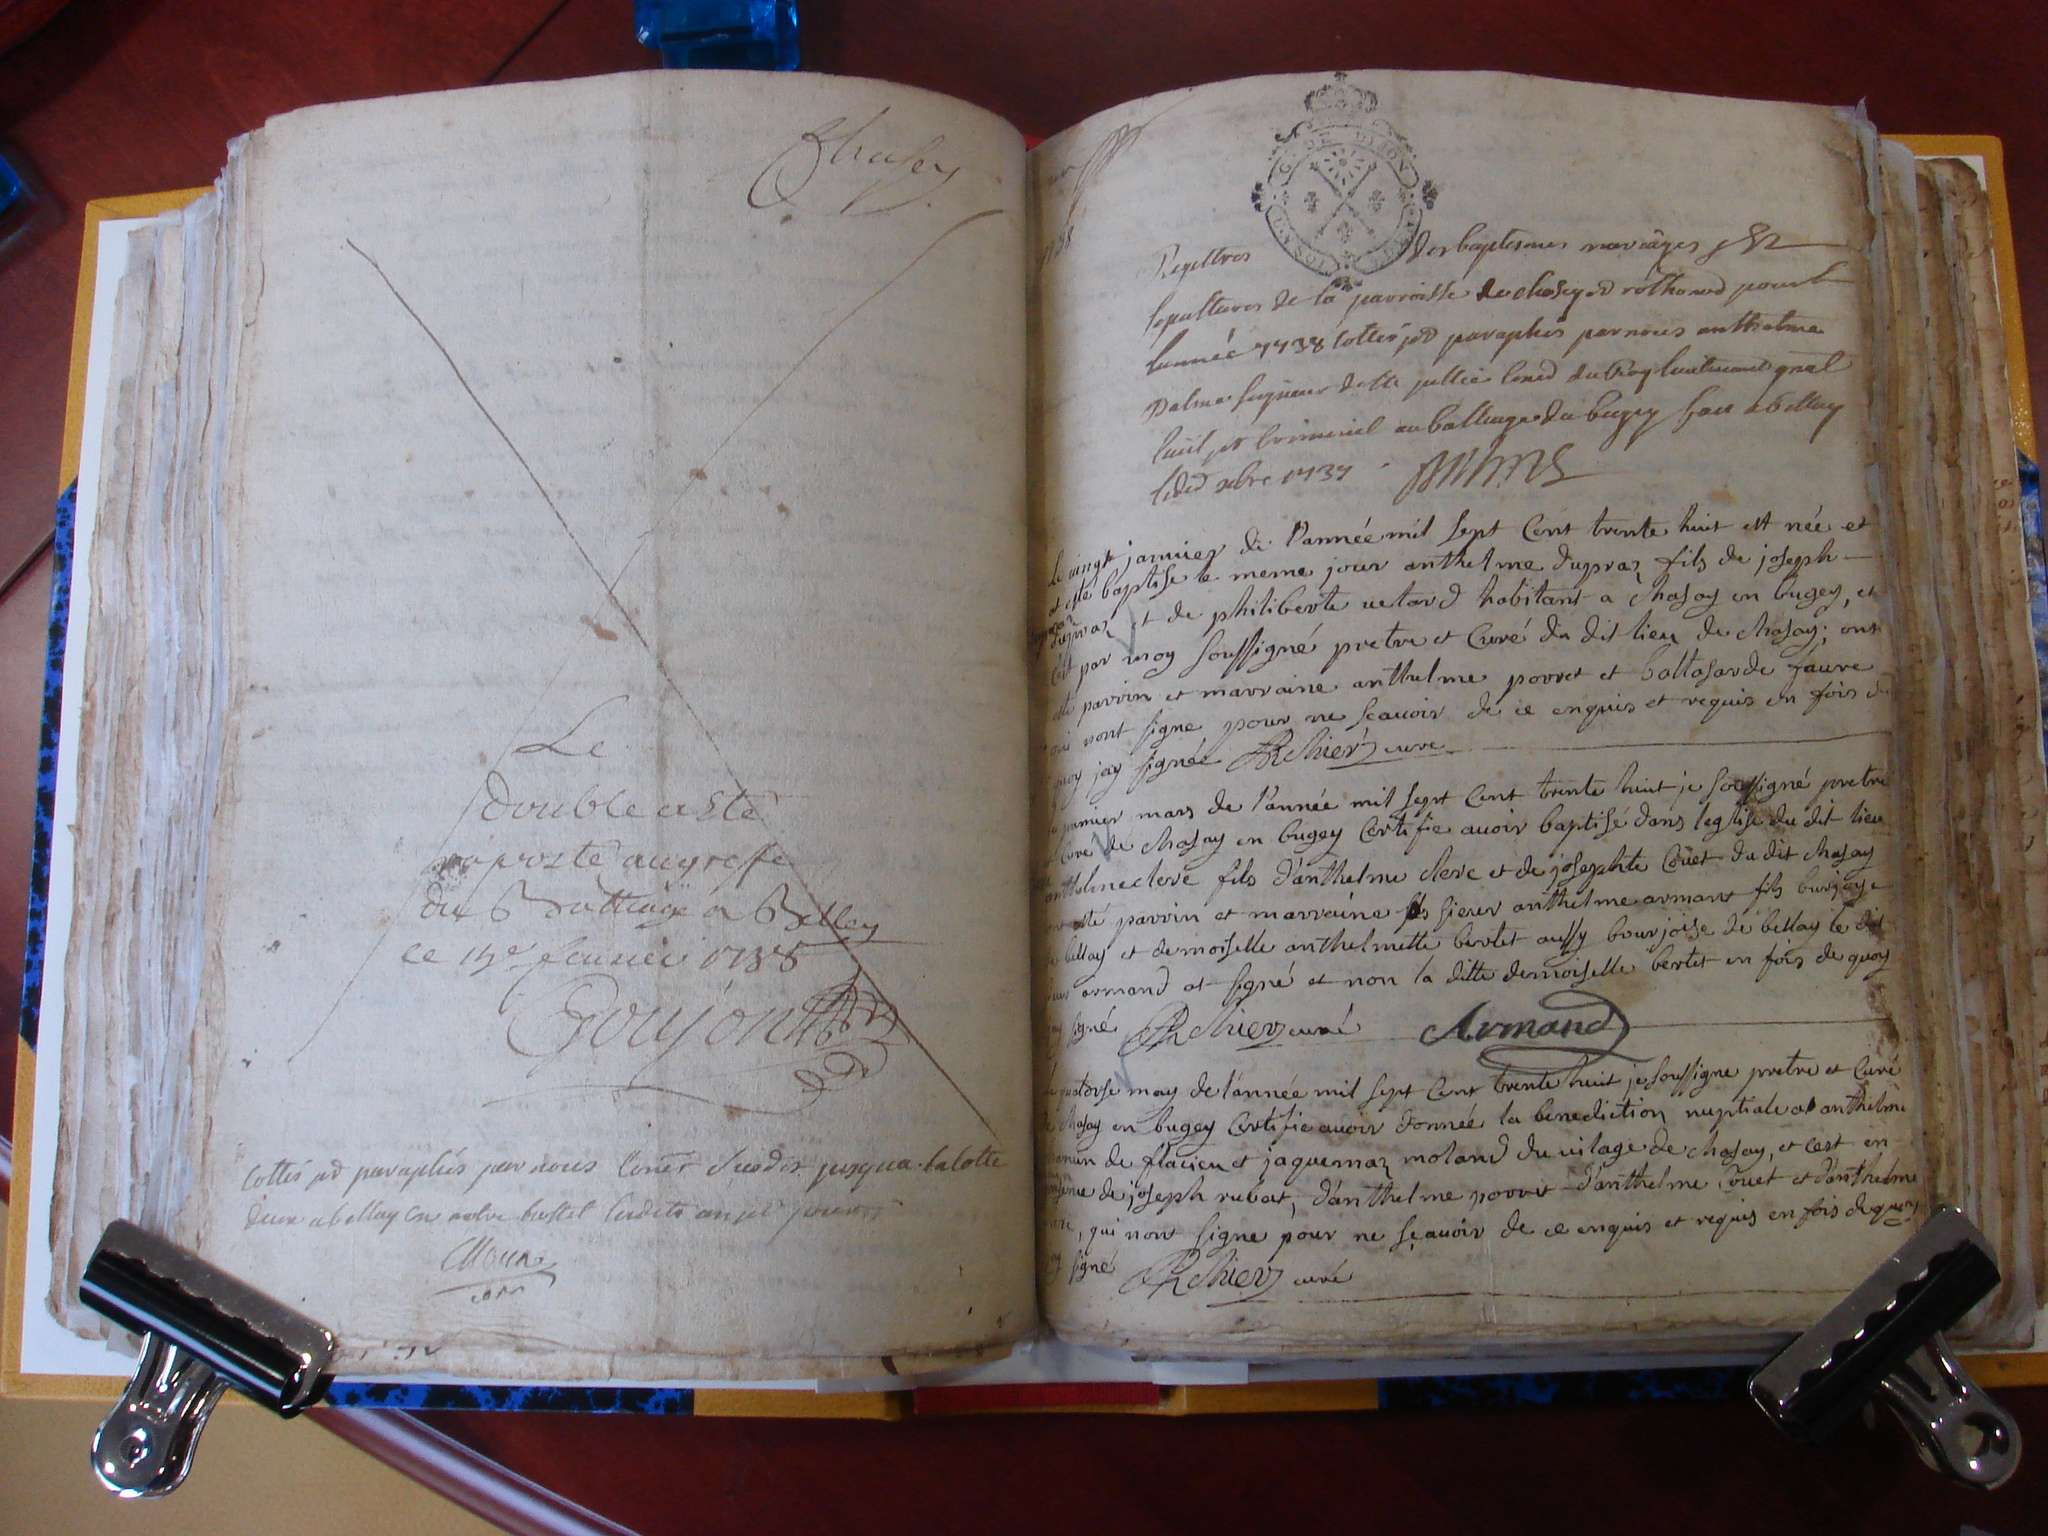 Chasey
Le
double a esté
aporté au greffe
du Balliage a Belley
ce fevrier 1738
Goujon
Cottés et paraphés par nous jusqua la cotte
deux a bellay en notre hostel lesdits an et jour
1738
G. DE DIJON
Registres des baptesmes mariages et
sepultures de la parroisse de chasey et rothonod pour
lannée 1738 cottés et paraphés par nous anthelme
Dalma seigneur conser du Roy lieutenant gnal
civil et criminel au balliage du bugey fait a bellay
xbre 1737
Le vingt janvier de l'année mil sept cent trente huit est née et
at esté baptisé le meme jour anthelme dupraz fils de joseph
dupraz et de philiberte netard habitant a chasay en bugey, et
c'est par moy soussigné pretre et Curé du dit lieu de chasay; ont
esté parrin et marraine anthelme porret et baltasarde faure
qui nont signe pour ne sçauoir de ce enquis et requis en fois de
quoy jay signée Rchier curé
premier mars de l'année mil sept cent trente huit je soussigné pretre
Curé de chasay en bugey Certifie auoir baptisé dans leglise du dit lieu
anthelme clerc fils d'anthelme clerc et de josephte Couet du dit chasay
ont esté parrin et marraine sieur anthelme armant fils burjoye
de bellay et demoiselle anthelmette bertet aussy bourjoise de bellay le dit
sieur armand at signé et non la ditte demoiselle bertet en fois de quoy
jay signé Rchier curé Armand
Le quatorse may de l'année mil sept cent trente huit je soussigne pretre et Curé
de chasay en bugey Certifie auoir donnée la benediction nuptiale at anthelme
de flacieu et jaquemaz moland du uilage de chasay, et cest en
presence de joseph rubat, d'anthelme porret d'anthelme Couet et d'anthelme
, qui nont signe pour ne sçauoir de ce enquis et requis en fois de quoy
jay signé Rchier curé